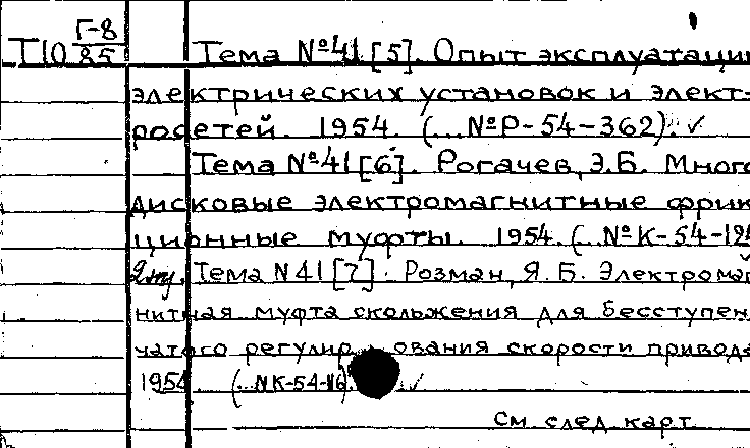 Т10 Г-8/85 Тема №41 [5]. Опыт эксплуатации
электрических установок и элект-
росетей. 1954. (...№Р-54-362). ✓
Тема №41 [6]. Рогачев, Э.Б. Много
дисковые электромагнитные фрик
ционные муфты. 1954. (...№К-54-12
Тема N41 [7]. Розман, Я.Б. Электромаг
нитная муфта скольжения для бесступен
чатого регулирования скорости привода
1954. (...NК-54-116) ✓
См. след. карт.